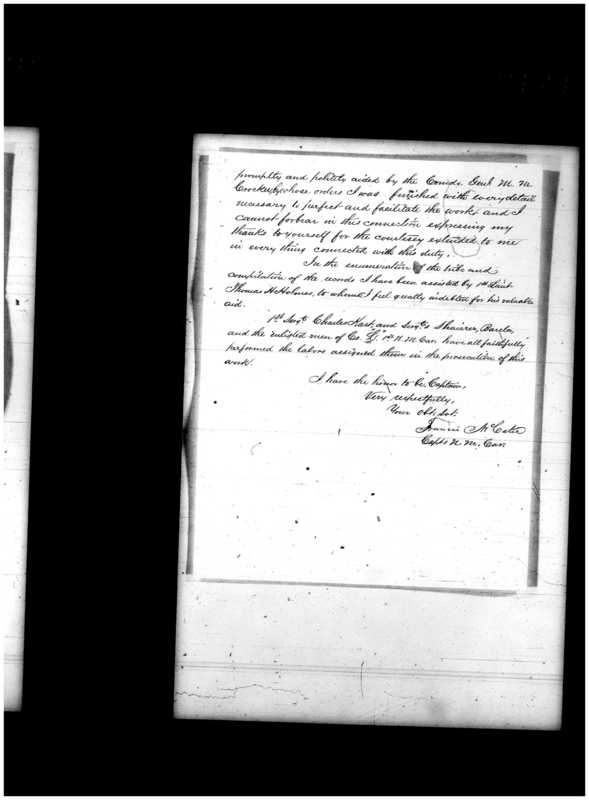 promptly and politely aided by the Comdg. Genl. M. M.
Crocker, by whose orders I was furnished with every detail
necessary to perfect and facilitate the works and I
cannot forbear in this connection expressing my
thanks to yourself for the courtesy extended to me
in every thing connected with this duty.
In the enumeration of the tribe and
compilation of the records I have been assisted by 1st Lieut
Thomas H. Holmes, to whom I feel greatly indebted for his valuable
aid.
1st Sergt. Charles and Sergts
and the enlisted men of Co. 1st N. M. Cav. have all faithfully
performed the labors assigned them in the prosecution of this
work.
I have the honor to be, Captain,
Very respectfully,
Your Obt. Svt.
Francis McCabe
Capt. N. M. Cav.